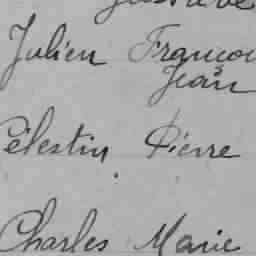 Julien Françoi
Jean
Célestin Pierre
Charles Marie